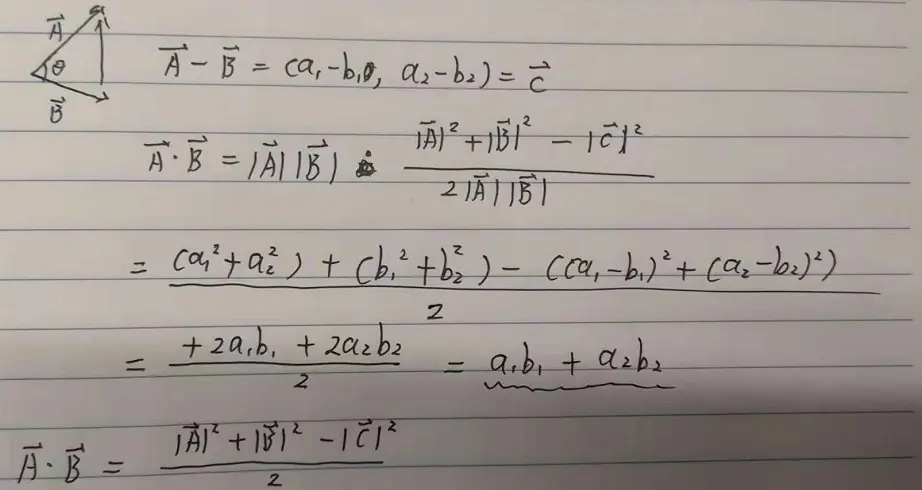 A⃗ θ B⃗
A⃗ - B⃗ = (a₁-b₁, a₂-b₂) = C⃗
A⃗ · B⃗ = |A⃗| |B⃗| · (|A⃗|² + |B⃗|² - |C⃗|²) / (2|A⃗| |B⃗|)
= ((a₁² + a₂²) + (b₁² + b₂²) - ((a₁-b₁)² + (a₂-b₂)²)) / 2
= (+2a₁b₁ + 2a₂b₂) / 2 = a₁b₁ + a₂b₂
A⃗ · B⃗ = (|A⃗|² + |B⃗|² - |C⃗|²) / 2